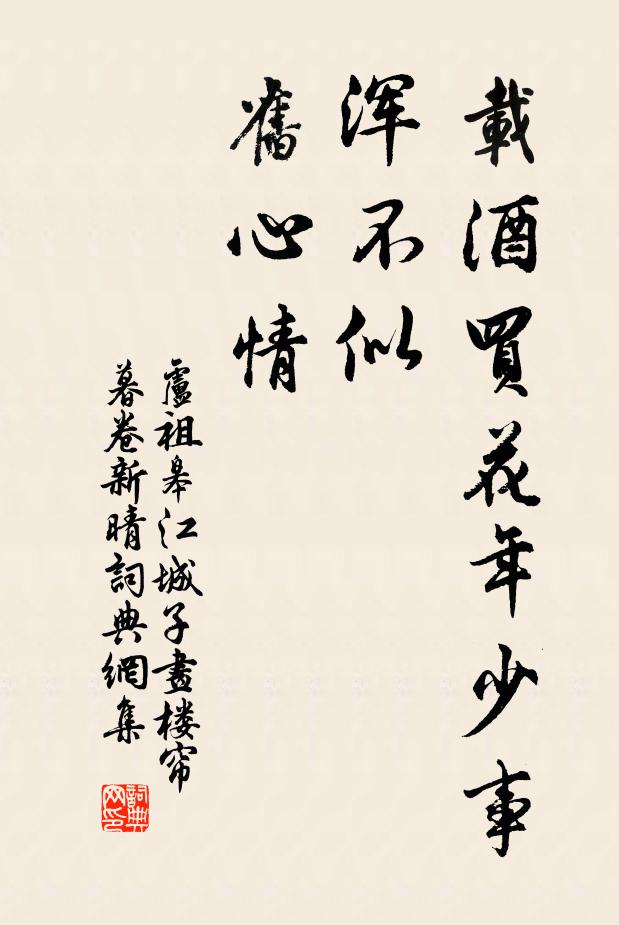 載酒買花年少事
渾不似
舊心情
盧祖皋江城子畫楼帘
暮卷新晴詞典網集
詞典
网印